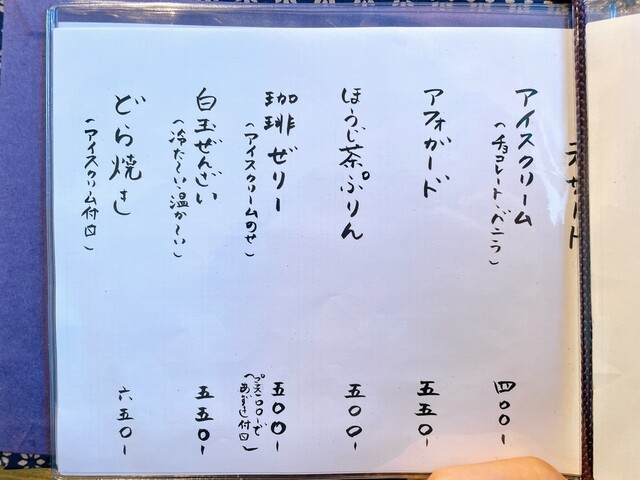 デザート
アイスクリーム
(チョコレート・バニラ)
四〇〇-
アフォガード
五五〇-
ほうじ茶ぷりん
五〇〇-
珈琲ゼリー
(アイスクリームのせ)
五〇〇-
(プラス一〇〇-で
あずき付口)
白玉ぜんざい
(冷た〜い・温か〜い)
五五〇-
どら焼き
(アイスクリーム付口)
六五〇-